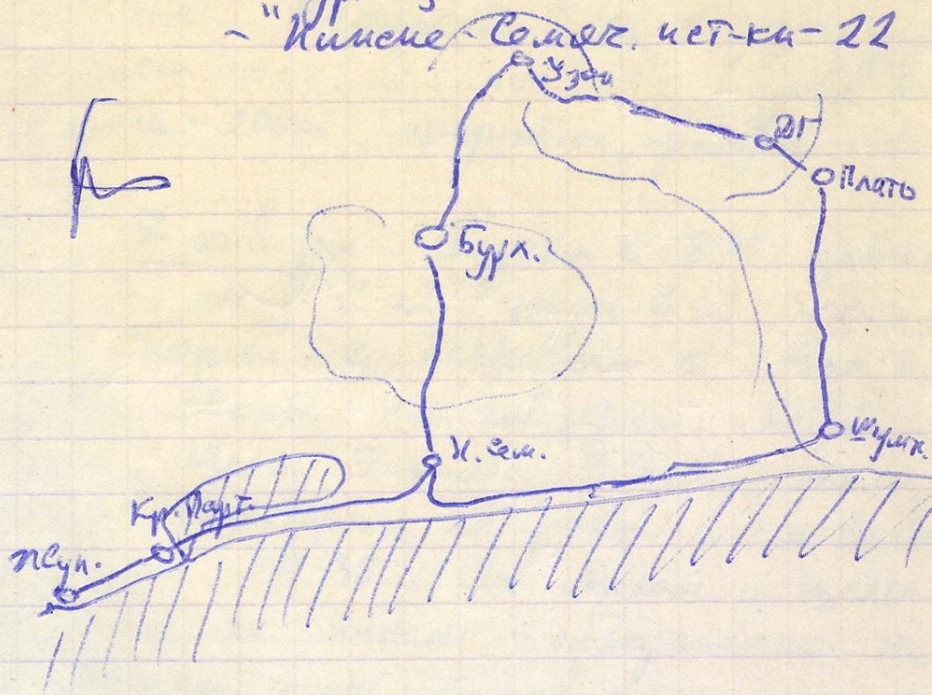 - "Нижне-Семяч. ист-ки - 22
Узон
ДГ
Плато
Бурх.
Н. Сем.
Шумн.
Кр. Парт.